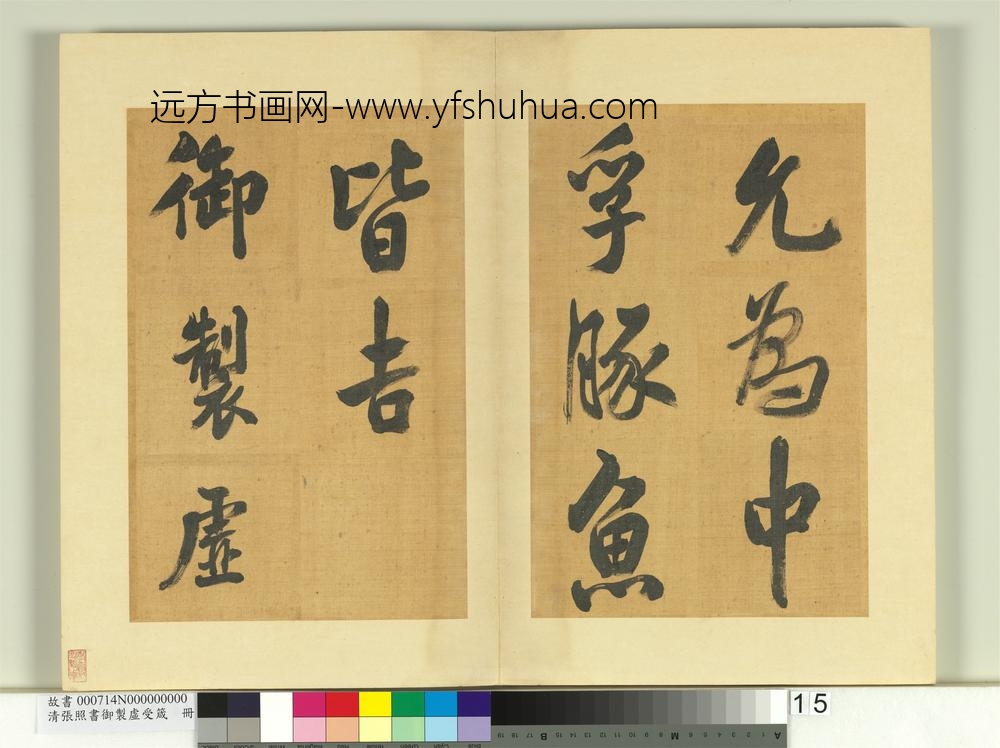 远方书画网-www.yfshuhua.com
允為中
孚豚魚
皆吉
御製虛
故書 000714N000000000
清張照書御製虛受箴 冊
15